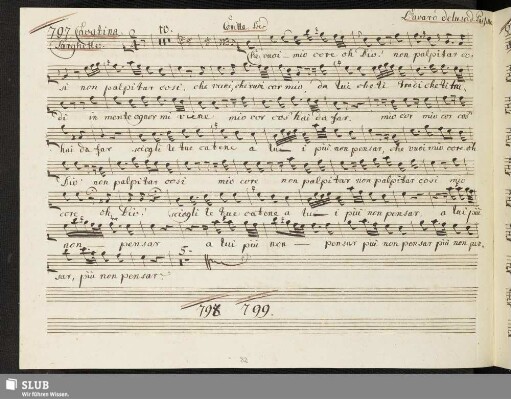 797 Cavatina
L'avaro deluso di Paisiello
Larghetto
Che vuoi mio core oh Dio! non palpitar co-
si non palpitar così, che vuoi, che vuoi cor mio, da lui che ti tradi che ti tra-
di in mente ognor mi viene mio cor cos' hai da far. mio cor mio cor cos'
hai da far sciogli le tue catene a lui più non pensar, che vuoi mio core oh
Dio! non palpitar così mio core non palpitar non palpitar così mio
core oh Dio! sciogli le tue catene a lui più non pensar a lui più
non pensar a lui più non pensar più non pensar più non pen-
sar, più non pensar.
798 799.
SLUB
Wir führen Wissen.